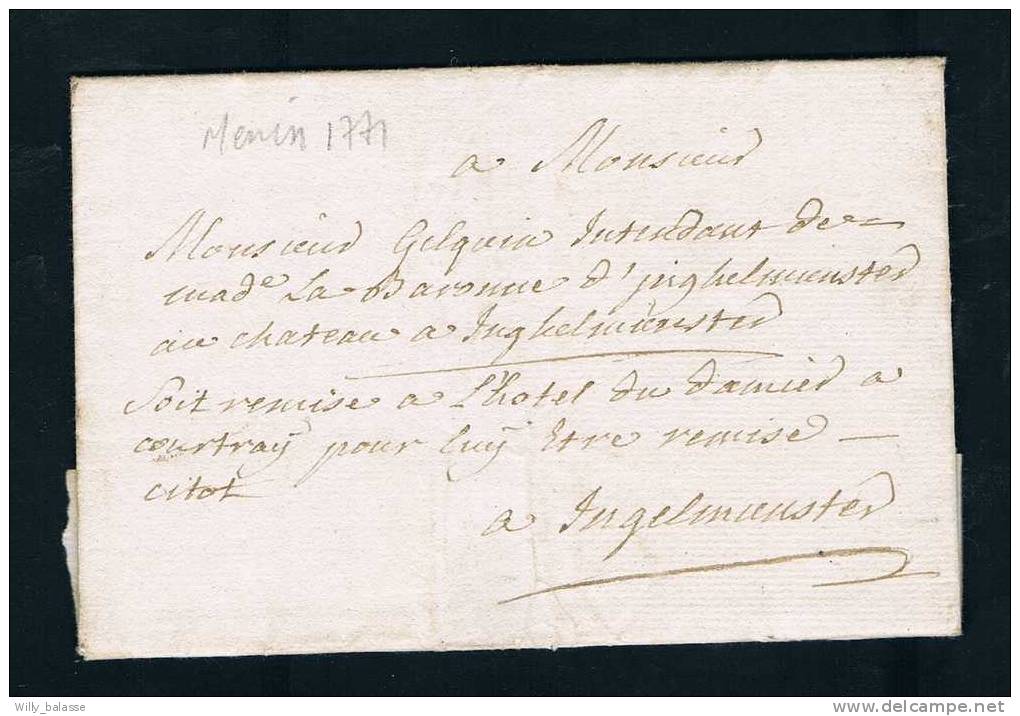 Menin 1771
a Monsieur
Monsieur Gelquin Intendant de
made La Baronne d'jnghelmunster
au chateau a Inghelmunster
Soit remise a L'hotel du damier a
courtray pour luy Etre remise
citot
a Ingelmunster
Willy_balasse